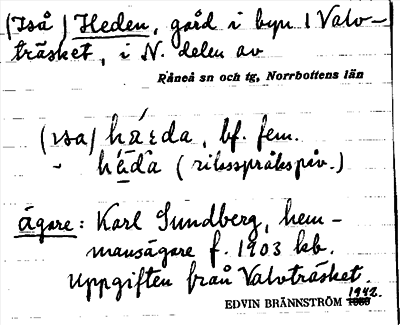 (Iså) Heden, gård i byn Valv-
träsket, i N. delen av
Råneå sn och tg, Norrbottens län
(ɪsa) hæɛda, bf. fem.
" héda (riksspråkspåv.)
ägare: Karl Sundberg, hem-
mansägare f. 1903 kb.
Uppgiften från Valvträsket.
1942.
EDVIN BRÄNNSTRÖM